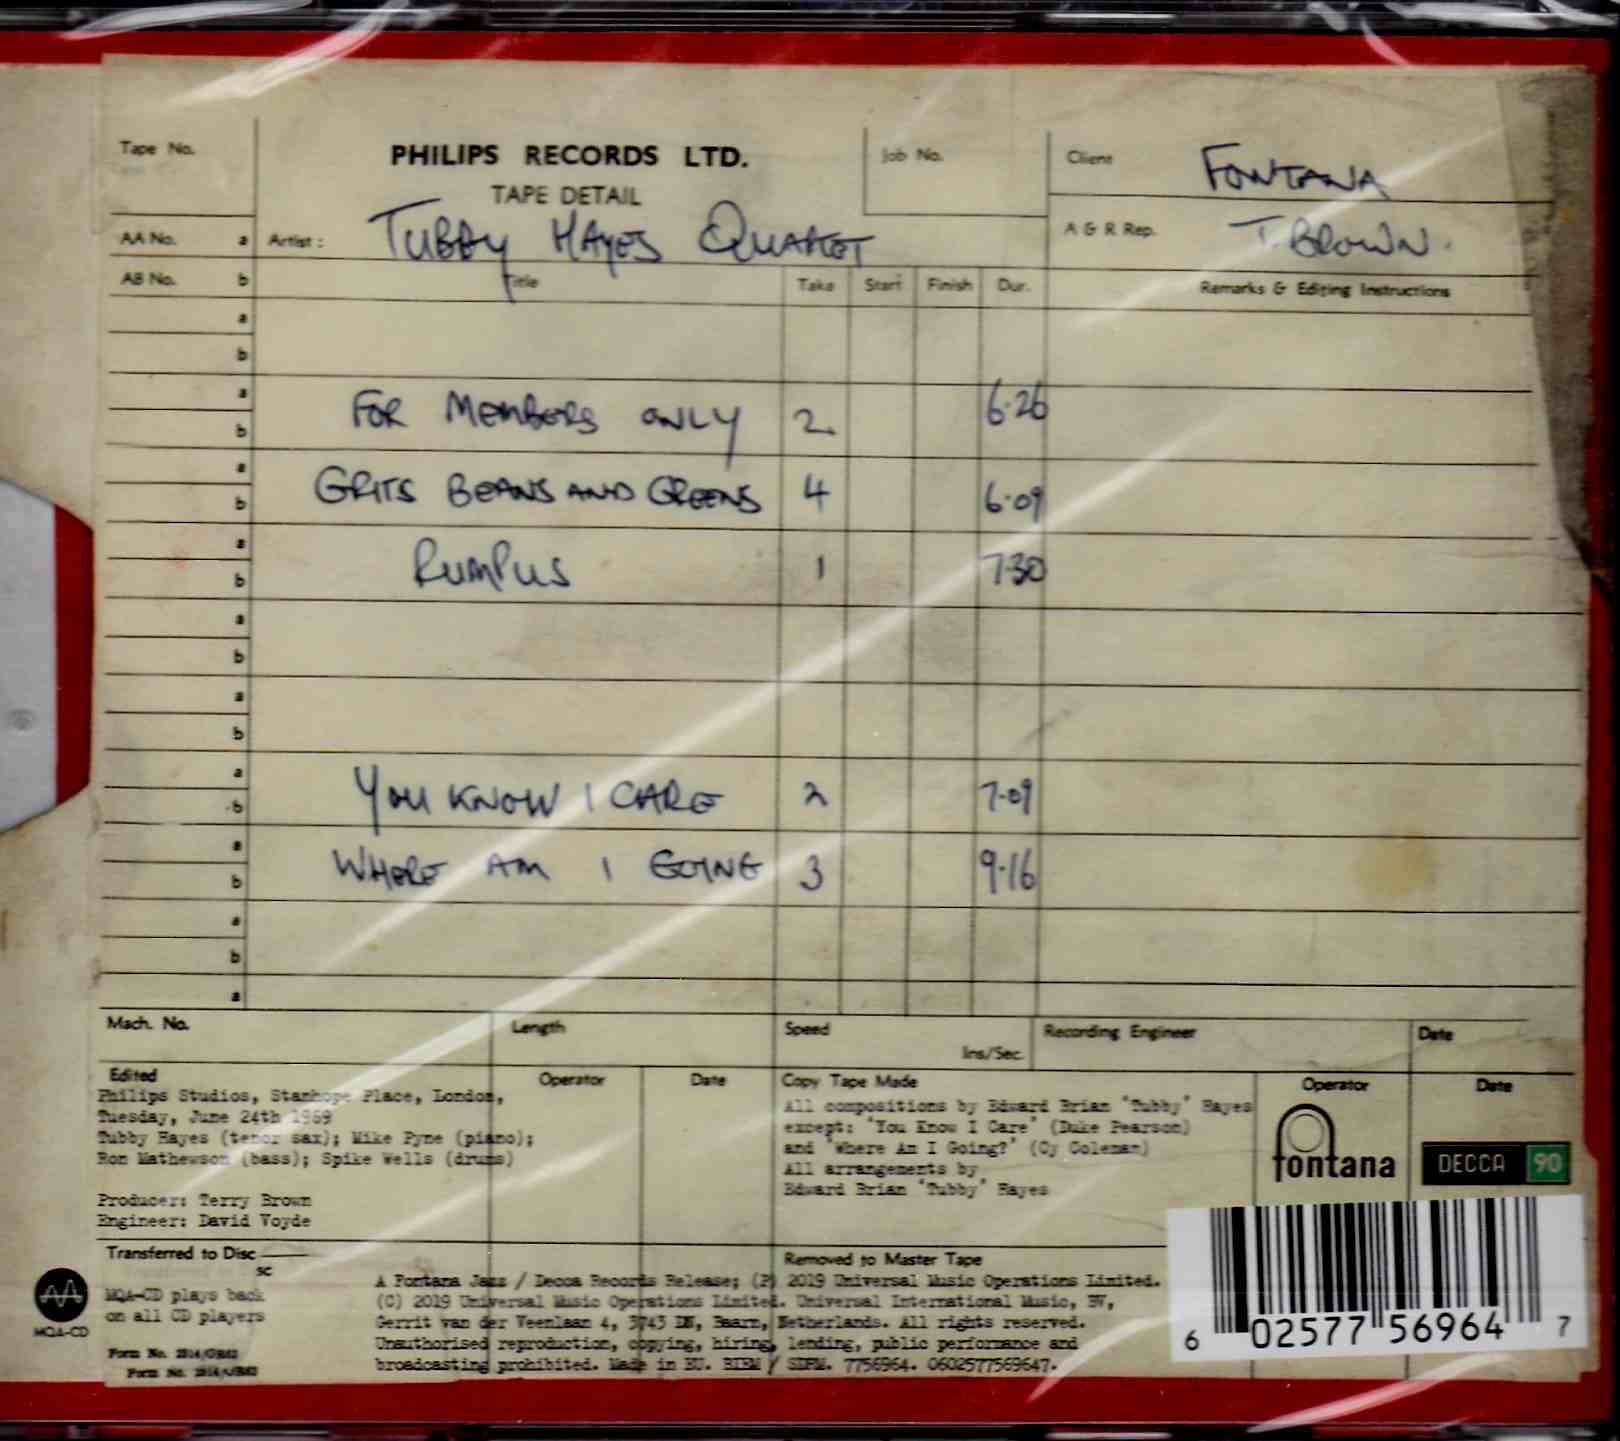 Tape No.
PHILIPS RECORDS LTD.
TAPE DETAIL
Job No.
Client FONTANA
A & R Rep. T. BROWN.
AA No. a Artist: TUBBY HAYES QUARTET
AB No. b Title Take Start Finish Dur. Remarks & Editing Instructions
a
b
a
FOR MEMBERS ONLY 2 6·26
b
a
GRITS BEANS AND GREENS 4 6·09
b
a
RUMPUS 1 7·30
b
a
b
a
b
a
YOU KNOW I CARE 2 7·09
b
a
WHERE AM I GOING 3 9·16
b
a
b
a
Mach. No. Length Speed Ins/Sec. Recording Engineer Date
Edited Operator Date Copy Tape Made Operator Date
Philips Studios, Stanhope Place, London,
Tuesday, June 24th 1969
Tubby Hayes (tenor sax); Mike Pyne (piano);
Ron Mathewson (bass); Spike Wells (drums)
Producer: Terry Brown
Engineer: David Voyde
All compositions by Edward Brian 'Tubby' Hayes
except: 'You Know I Care' (Duke Pearson)
and 'Where Am I Going?' (Cy Coleman)
All arrangements by
Edward Brian 'Tubby' Hayes
fontana
DECCA 90
Transferred to Disc
sc
Removed to Master Tape
MQA-CD
MQA-CD plays back
on all CD players
A Fontana Jazz / Decca Records Release; (P) 2019 Universal Music Operations Limited.
(C) 2019 Universal Music Operations Limited. Universal International Music, BV,
Gerrit van der Veenlaan 4, 3743 DN, Baarn, Netherlands. All rights reserved.
Unauthorised reproduction, copying, hiring, lending, public performance and
broadcasting prohibited. Made in EU. BIEM / SDRM. 7756964. 0602577569647.
Form No.
Form No.
6 02577 56964 7